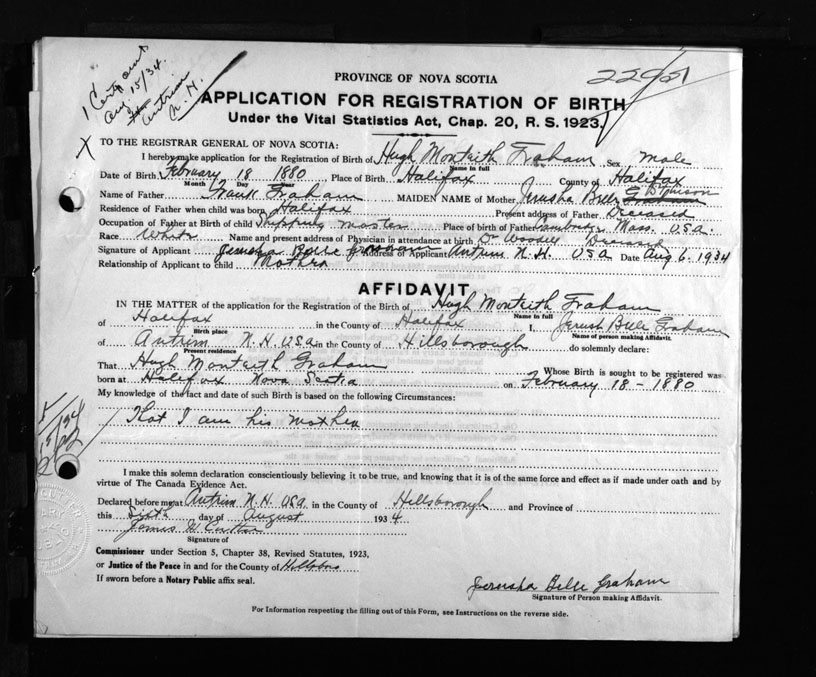 22901
1 Cert sent
Aug 15/34.
Antrim
N. H.
PROVINCE OF NOVA SCOTIA
APPLICATION FOR REGISTRATION OF BIRTH
Under the Vital Statistics Act, Chap. 20, R. S. 1923.
X TO THE REGISTRAR GENERAL OF NOVA SCOTIA:
I hereby make application for the Registration of Birth of Hugh Monteith Graham Sex male
Name in full
Date of Birth February 18 1880 Place of Birth Halifax County of Halifax
Month Day Year
Name of Father Frank Graham MAIDEN NAME of Mother Jerusha Belle Graham
Residence of Father when child was born Halifax Present address of Father Deceased
Occupation of Father at Birth of child Shipping master Place of Birth of Father Cambridge Mass. USA.
Race White Name and present address of Physician in attendance at birth Dr Woodill Deceased
Signature of Applicant Jerusha Belle Graham Address of Applicant Antrim N. H. USA Date Aug 6. 1934
Relationship of Applicant to child Mother
AFFIDAVIT
IN THE MATTER of the application for the Registration of the Birth of Hugh Monteith Graham
Name in full
of Halifax in the County of Halifax I, Jerush Belle Graham
Birth place Name of person making Affidavit.
of Antrim N.H. USA in the County of Hillsborough do solemnly declare:
Present residence
That Hugh Monteith Graham Whose Birth is sought to be registered was
born at Halifax Nova Scotia on February 18 - 1880
My knowledge of the fact and date of such Birth is based on the following Circumstances:
That I am his mother
I make this solemn declaration conscientiously believing it to be true, and knowing that it is of the same force and effect as if made under oath and by
virtue of The Canada Evidence Act.
Declared before me at Antrim N.H. USA in the County of Hillsborough and Province of
this Sixth day of August 1934
James W.
Signature of
Commissioner under Section 5, Chapter 38, Revised Statutes, 1923,
or Justice of the Peace in and for the County of Hillsboro
If sworn before a Notary Public affix seal.
Jerusha Belle Graham
Signature of Person making Affidavit.
For Information respecting the filling out of this Form, see Instructions on the reverse side.